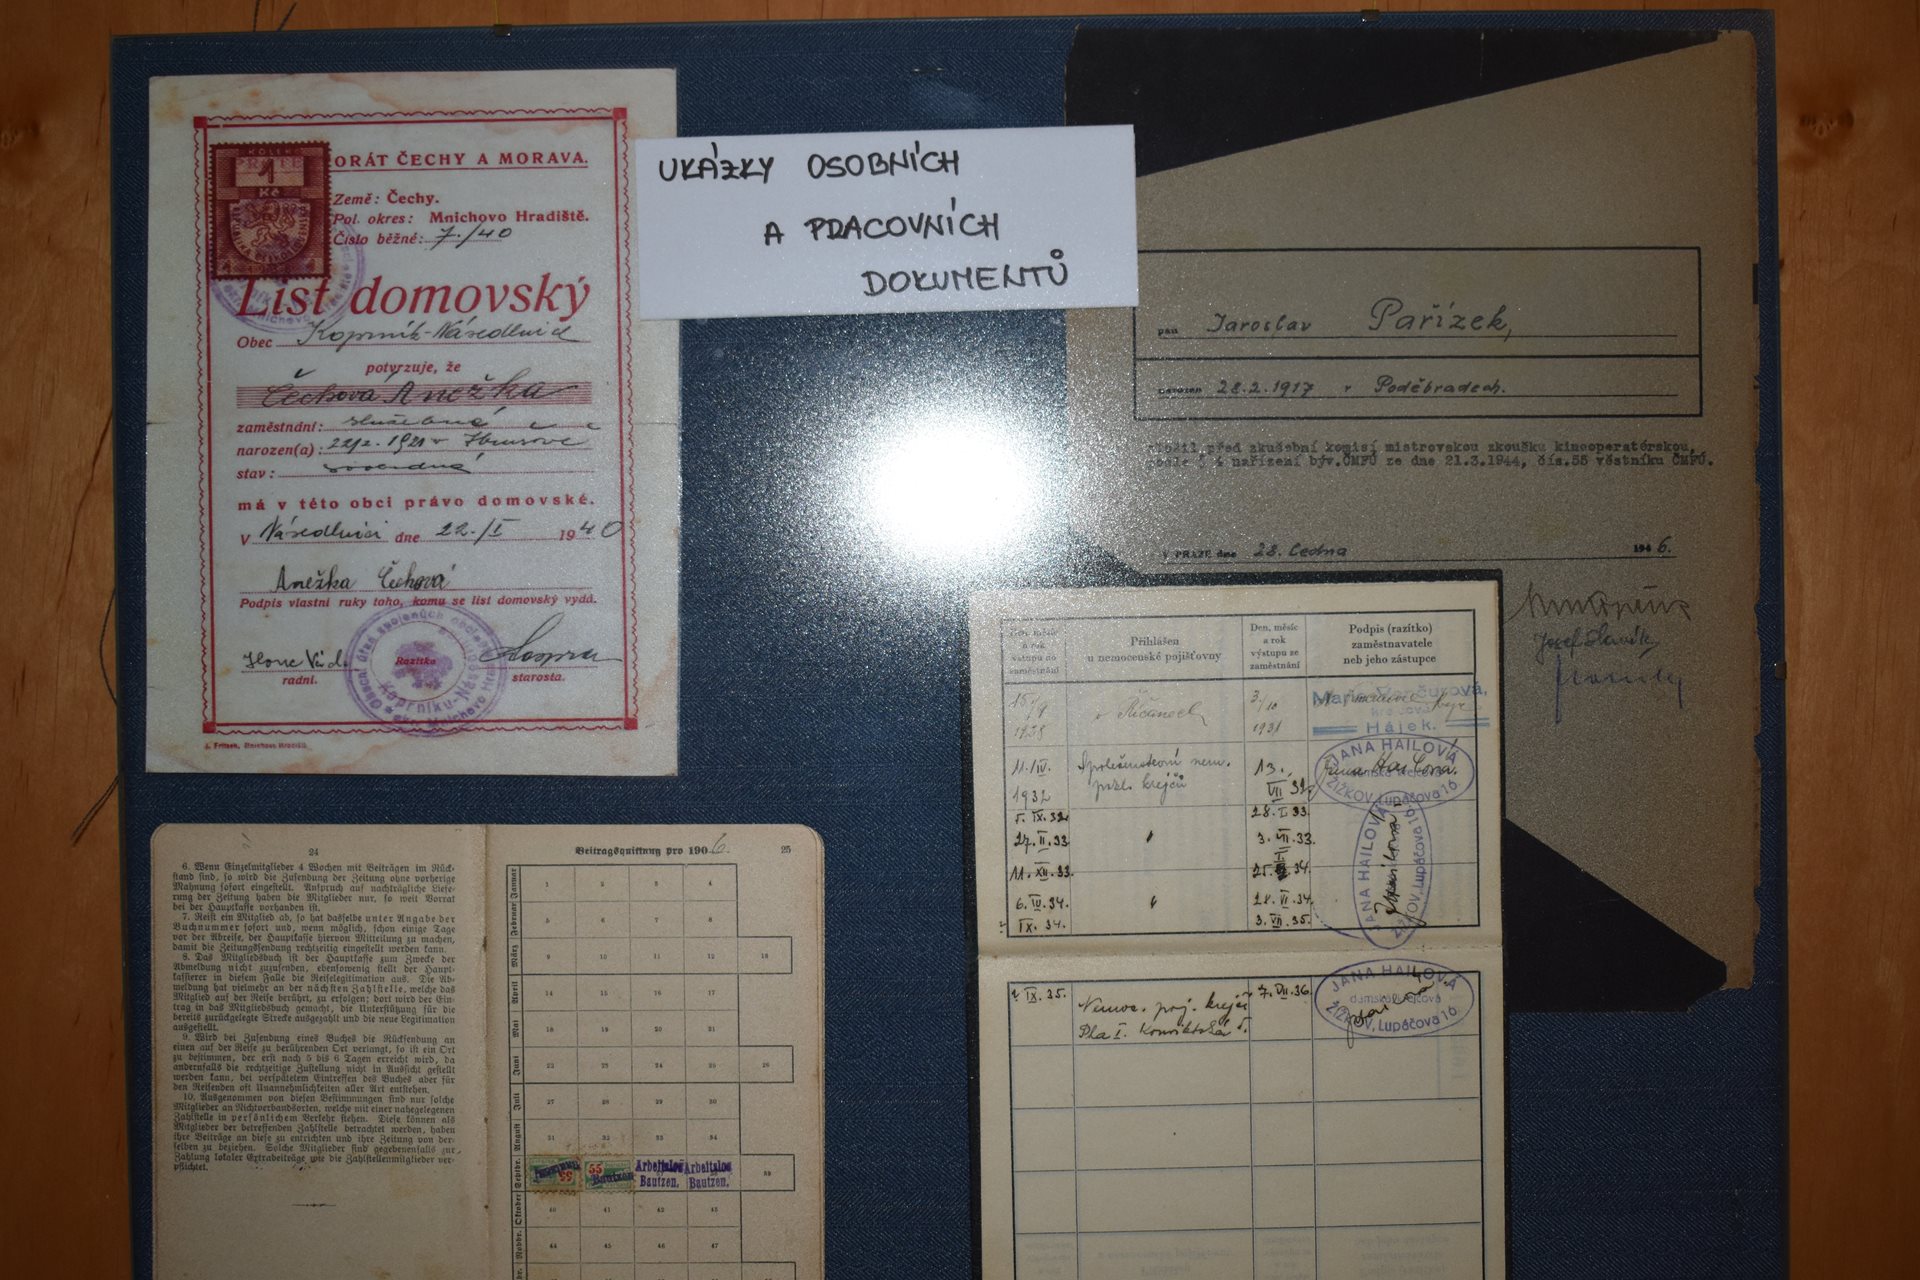 UKÁZKY OSOBNÍCH
A PRACOVNÍCH
DOKUMENTŮ
KOLEK
1
Kč
ORÁT ČECHY A MORAVA.
Země: Čechy.
Pol. okres: Mnichovo Hradiště.
Číslo běžné: 7./40
List domovský
Obec
potvrzuje, že
Čechova Anežka
zaměstnání: služebná
narozen(a):
stav: svobodná
má v této obci právo domovské.
V Násedlnici dne 22./I 1940
Anežka Čechová
Podpis vlastní ruky toho, komu se list domovský vydá.
radní.
Razítko
starosta.
pan Jaroslav Pařízek,
narozen 28.2.1917 v Poděbradech.
složil před zkušební komisí mistrovskou zkoušku kinooperatérskou,
podle § 4 nařízení býv.ČMFÚ ze dne 21.3.1944, čís.55 věstníku ČMFÚ.
V PRAZE dne 28. ledna 1946.
24
6. Wenn Einzelmitglieder 4 Wochen mit Beiträgen im Rück-
stand sind, so wird die Zusendung der Zeitung ohne vorherige
Mahnung sofort eingestellt. Anspruch auf nachträgliche Liefe-
rung der Zeitung haben die Mitglieder nur, so weit Vorrat
bei der Hauptkasse vorhanden ist.
7. Reist ein Mitglied ab, so hat dasselbe unter Angabe der
Buchnummer sofort und, wenn möglich, schon einige Tage
vor der Abreise, der Hauptkasse hiervon Mitteilung zu machen,
damit die Zeitungssendung rechtzeitig eingestellt werden kann.
8. Das Mitgliedsbuch ist der Hauptkasse zum Zwecke der
Abmeldung nicht zuzusenden, ebensowenig stellt der Haupt-
kassierer in diesem Falle die Reiselegitimation aus. Die Ab-
meldung hat vielmehr an der nächsten Zahlstelle, welche das
Mitglied auf der Reise berührt, zu erfolgen; dort wird der Ein-
trag in das Mitgliedsbuch gemacht, die Unterstützung für die
bereits zurückgelegte Strecke ausgezahlt und die neue Legitimation
ausgestellt.
9. Wird bei Zusendung eines Buches die Rücksendung an
einen auf der Reise zu berührenden Ort verlangt, so ist ein Ort
zu bestimmen, der erst nach 5 bis 6 Tagen erreicht wird, da
andernfalls die rechtzeitige Zustellung nicht in Aussicht gestellt
werden kann, bei verspätetem Eintreffen des Buches aber für
den Reisenden oft Unannehmlichkeiten aller Art entstehen.
10. Ausgenommen von diesen Bestimmungen sind nur solche
Mitglieder an Nichtverbandsorten, welche mit einer nahegelegenen
Zahlstelle in persönlichem Verkehr stehen. Diese können als
Mitglieder der betreffenden Zahlstelle betrachtet werden, haben
ihre Beiträge an diese zu entrichten und ihre Zeitung von der-
selben zu beziehen. Solche Mitglieder sind gegebenenfalls zur
Zahlung lokaler Extrabeiträge wie die Zahlstellenmitglieder ver-
pflichtet.
Beitragsquittung pro 1906. 25
Januar 1 2 3 4
Februar 5 6 7 8
März 9 10 11 12 13
April 14 15 16 17
Mai 18 19 20 21
Juni 22 23 24 25 26
Juli 27 28 29 30
August 31 32 33 34
Septbr. 55 55 Bautzen Arbeitslos Bautzen. Arbeitslos Bautzen. 39
Oktober 40 41 42 43
Novbr. 44 45 46 47
Den, měsíc
a rok
vstupu do
zaměstnání
Přihlášen
u nemocenské pojišťovny
Den, měsíc
a rok
výstupu ze
zaměstnání
Podpis (razítko)
zaměstnavatele
neb jeho zástupce
v Říčanech
1931
Hájek.
11./IV. 1932
13. VII
JANA HAILOVÁ
ŽIŽKOV, Lupáčova 16
5. IX. 32 28. I. 33.
27. II. 33 3. VII. 33.
11. XII. 33.
6. IV. 34. 28. VI. 34.
IX. 34. 3. VII. 35.
JANA HAILOVÁ
ŽIŽKOV, Lupáčova 16
IX. 35. Nemoc. poj. krejčí 7. VII. 36.
JANA HAILOVÁ
damská krejčová
ŽIŽKOV, Lupáčova 16